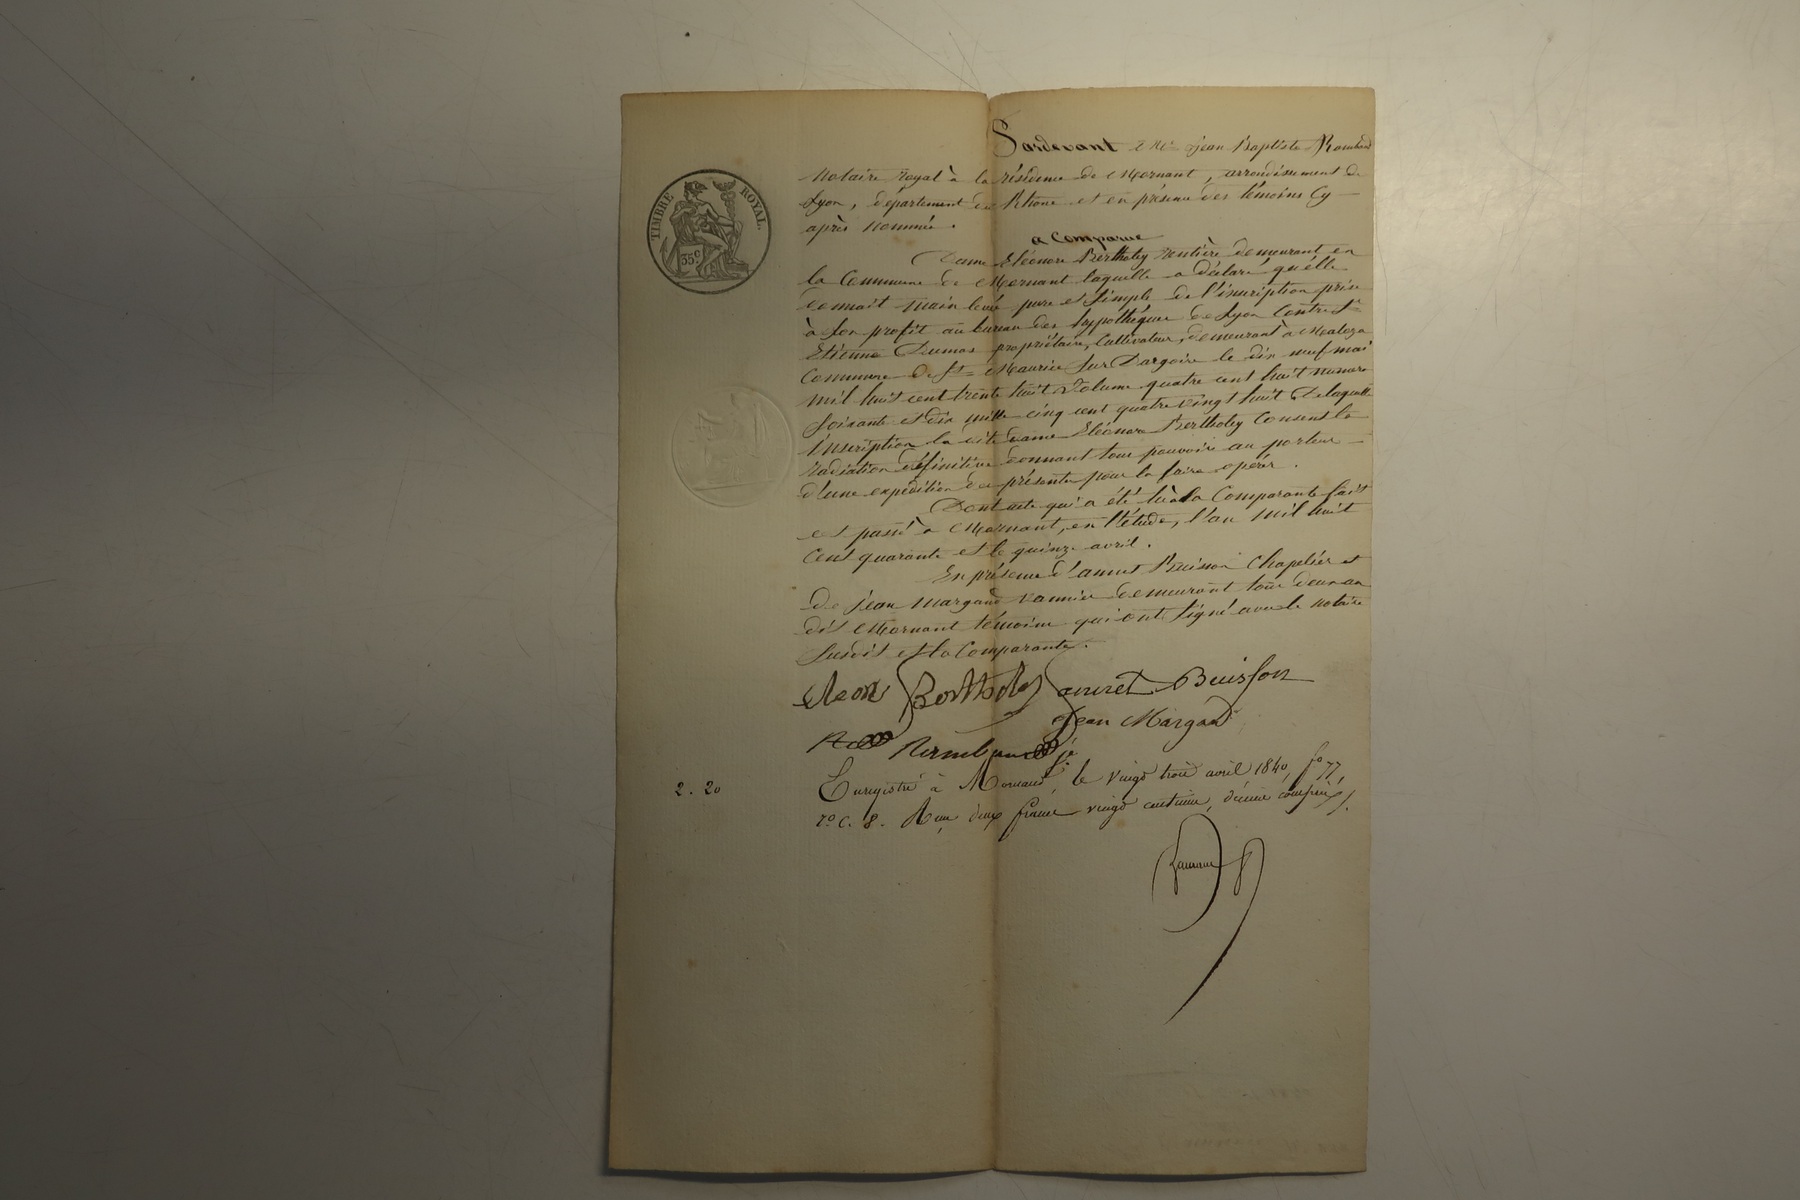 TIMBRE ROYAL
35 c
Pardevant Me Jean Baptiste
Notaire royal à la résidence de Mornant, arrondissement de
Lyon, département du Rhône et en présence des témoins cy
après nommés.
a Comparue
Dame Eléonore Bertholey rentière demeurant en
la Commune de Mornant laquelle a déclaré qu'elle
donnait main levée pure et simple de l'inscription prise
à son profit au bureau des hypothèques de Lyon contre Sr
Etienne Dumas propriétaire, Cultivateur, demeurant à
Commune de St Maurice sur Dargoire le dix neuf mai
mil huit cent trente huit volume quatre cent huit numéro
soixante et dix mille cinq cent quatre vingt huit De laquelle
Inscription la dite dame Eléonore Bertholey Consent la
radiation définitive donnant tous pouvoirs au porteur
d'une expédition des présentes pour la faire opérer.
Dont acte qui a été lu à la Comparante fait
et passé à Mornant, en l'étude, l'an mil huit
Cent quarante et le quinze avril.
En présence d'annet Buisson Chapelier et
De jean margand vannier demeurant tous deux au
dit Mornant témoins qui ont signé avec le notaire
susdit et la Comparante.
eleonr Bertholey annet Buisson
Jean Margand
Enregistré à Mornant, le vingt trois avril 1840, fo 77,
2. 20
ro c. 8. Reçu deux francs vingt centimes, décime compris.